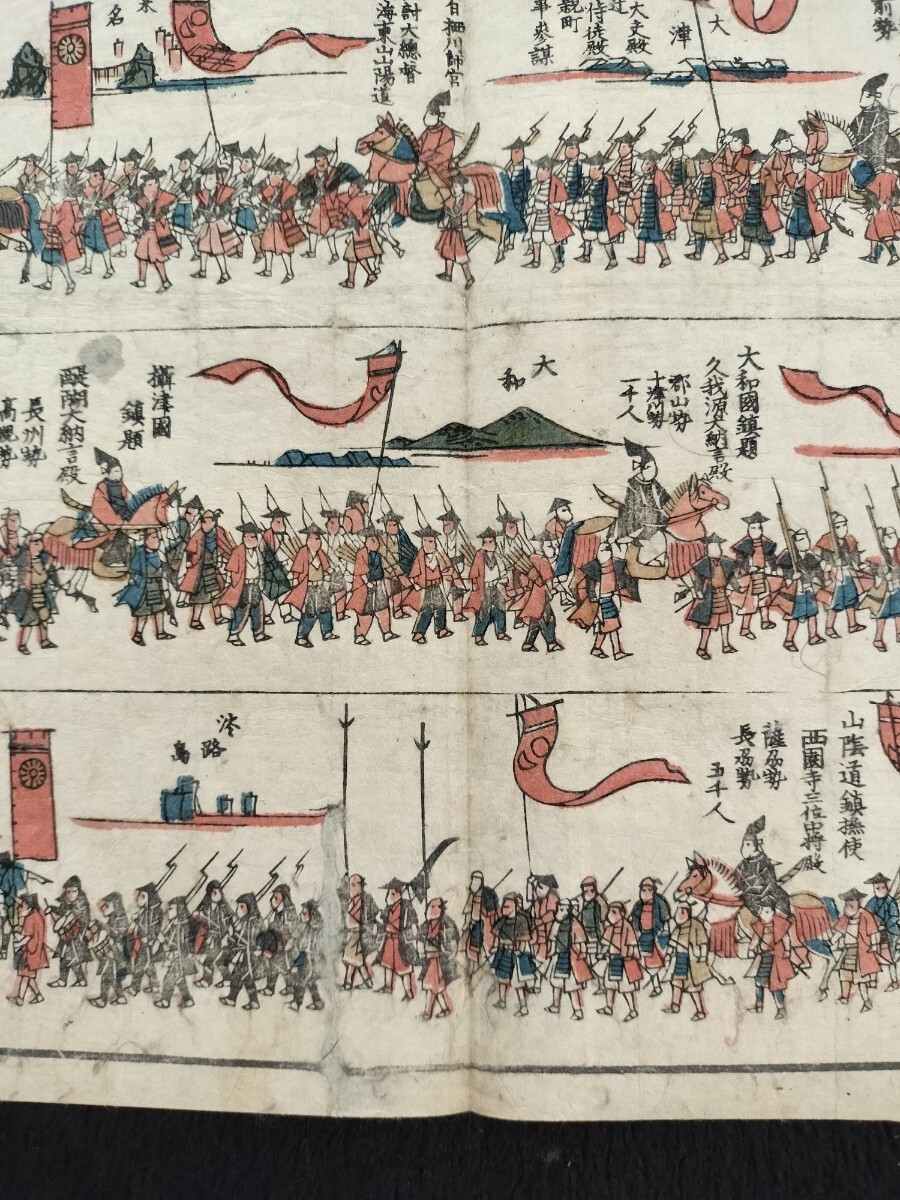 前勢
大
津
大夫殿
侍従殿
親町
事参謀
細川師宮
討大總督
海東山山陽道
名
大和國鎮題
久我源大納言殿
郡山勢
十津川勢
一千人
大
和
攝津國
鎮題
醍醐大納言殿
長州勢
山陰道鎮撫使
西園寺三位中将殿
薩刕勢
長刕勢
五千人
淡
路
島